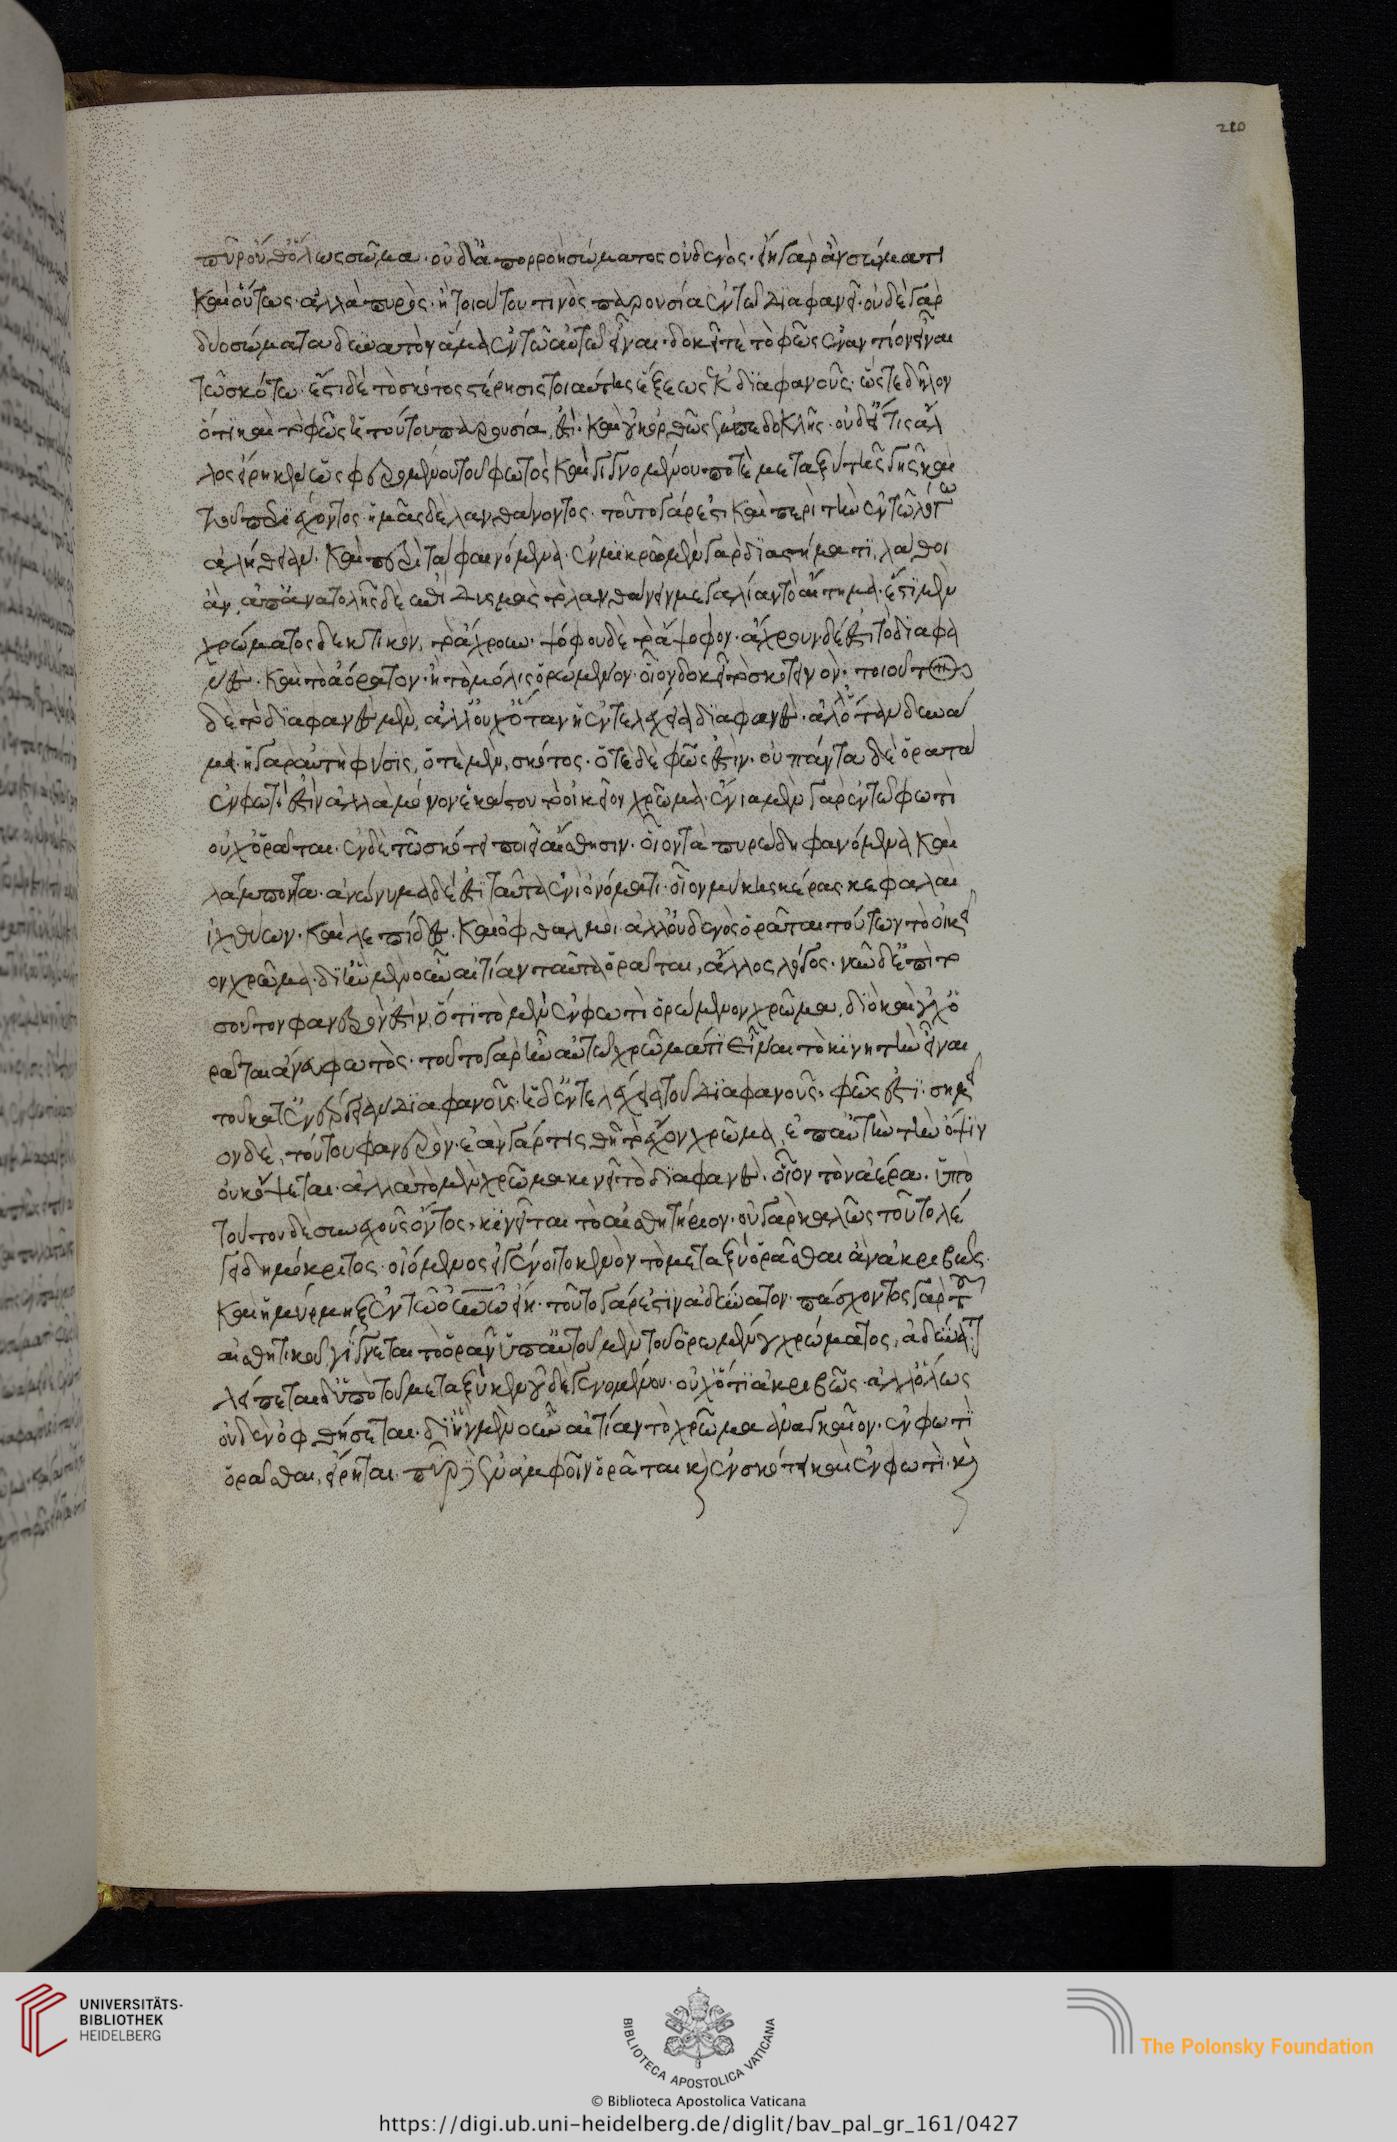 πῦρ οὔθ' ὅλως σῶμα· οὐδ' ἀπορροὴ σώματος οὐδενός· εἴη γὰρ ἂν σῶμά τι
καὶ οὕτως· ἀλλὰ πυρὸς· ἢ τοιούτου τινὸς παρουσία ἐν τῶ διαφανεῖ· οὐδὲ γὰρ
δύο σώματα δυνατὸν ἅμα ἐν τῶ αὐτῶ εἶναι· δοκεῖ τὲ τὸ φῶς ἐναντίον εἶναι
τῶ σκότω· ἔστι δὲ τὸ σκότος στέρησις τοιαύτης ἕξεως ἐκ διαφανοῦς· ὥστε δῆλον
ὅτι καὶ τὸ φῶς ἡ τούτου παρουσία ἐστί· καὶ οὐκ ὀρθῶς ἐμπεδοκλῆς· οὐδ' εἴ τις ἄλ
λος εἴρηκεν ὡς φερομένου τοῦ φωτὸς καὶ γιγνομένου ποτὲ μεταξὺ τῆς γῆς καὶ
τοῦ περιέχοντος· ἡμᾶς δὲ λανθάνοντος· τοῦτο γάρ ἐστι καὶ περὶ τὴν ἐν τῶ λόγω
ἀλήθειαν· καὶ παρὰ τὰ φαινόμενα· ἐν μικρῶ μὲν γὰρ διαστήματι, λάθοι
ἂν, ἀπ' ἀνατολῆς δὲ ἐπὶ δυσμὰς τὸ λανθάνειν μέγα λίαν τὸ αἴτημα· ἔστι μὲν
χρώματος δεκτικὸν, τὸ ἄχρουν· ψόφου δὲ τὸ ἄψοφον· ἄχρουν δέ ἐστι τὸ διαφα
νές· καὶ τὸ ἀόρατον· ἢ τὸ μόλις ὁρώμενον· οἷον δοκεῖ τὸ σκοτεινόν· τοιοῦτον
δὲ τὸ διαφανὲς μὲν, ἀλλ' οὐχ ὅταν ἦ ἐντελεχεία διαφανές· ἀλλ' ὅταν δυνά
μει· ἡ γὰρ αὐτὴ φύσις, ὁτὲ μὲν, σκότος· ὁτὲ δὲ φῶς ἐστίν· οὐ πάντα δὲ ὁρατὰ
ἐν φωτί ἐστὶν ἀλλὰ μόνον ἑκάστου τὸ οἰκεῖον χρῶμα· ἔνια μὲν γὰρ ἐν τῶ φωτὶ
οὐχ ὁρᾶται· ἐν δὲ τῶ σκότει ποιεῖ αἴσθησιν· οἷον τὰ πυρώδη φαινόμενα καὶ
λάμποντα· ἀνώνυμα δέ ἐστι ταῦτα ἑνὶ ὀνόματι· οἷον μύκης κέρας κεφαλαὶ
ἰχθύων· καὶ λεπίδες· καὶ ὀφθαλμοὶ· ἀλλ' οὐδενὸς ὁρᾶται τούτων τὸ οἰκεῖ
ον χρῶμα· δι' ἣν μὲν οὖν αἰτίαν ταῦτα ὁρᾶται, ἄλλος λόγος· νῦν δ' ἐπὶ το
σοῦτον φανερόν ἐστιν, ὅτι τὸ μὲν ἐν φωτὶ ὁρώμενον χρῶμα, διὸ καὶ οὐχ ὁ
ρᾶται ἄνευ φωτὸς· τοῦτο γὰρ ἦν αὐτῶ χρώματι εἶναι τὸ κινητικῶ εἶναι
τοῦ κατ' ἐνέργειαν διαφανοῦς· ἡ δ' ἐντελέχεια τοῦ διαφανοῦς, φῶς ἐστί· σημεῖ
ον δὲ, τούτου φανερόν· ἐὰν γάρ τις θῆ τὸ ἔχον χρῶμα, ἐπ' αὐτὴν τὴν ὄψιν
οὐκ ὄψεται· ἀλλὰ τὸ μὲν χρῶμα κινεῖ τὸ διαφανές· οἷον τὸν ἀέρα· ὑπὸ
τούτου δὲ συνεχοῦς ὄντος, κινεῖται τὸ αἰσθητήριον· οὐ γὰρ καλῶς τοῦτο λέ
γει δημόκριτος· οἰόμενος εἰ γένοιτο κενὸν τὸ μεταξὺ ὁρᾶσθαι ἂν ἀκριβῶς·
καὶ εἰ μύρμηξ ἐν τῶ οὐρανῶ εἴη· τοῦτο γάρ ἐστιν ἀδύνατον· πάσχοντος γάρ τοῦ
αἰσθητικοῦ γίγνεται τὸ ὁρᾶν· ὑπ' αὐτοῦ μὲν τοῦ ὁρωμένου χρώματος, ἀδύνατον·
λείπεται δ' ὑπὸ τοῦ μεταξύ· κενοῦ δὲ γενομένου· οὐχ ὅτι ἀκριβῶς· ἀλλ' ὅλως
οὐδὲν ὀφθήσεται· δι' ἣν μὲν οὖν αἰτίαν τὸ χρῶμα ἀναγκαῖον· ἐν φωτὶ
ὁρᾶσθαι, εἴρηται· πῦρ δὲ ἐν ἀμφοῖν ὁρᾶται καὶ ἐν σκότει καὶ ἐν φωτὶ· καὶ
210
UNIVERSITÄTS-
BIBLIOTHEK
HEIDELBERG
BIBLIOTECA APOSTOLICA VATICANA
The Polonsky Foundation
© Biblioteca Apostolica Vaticana
https://digi.ub.uni-heidelberg.de/diglit/bav_pal_gr_161/0427